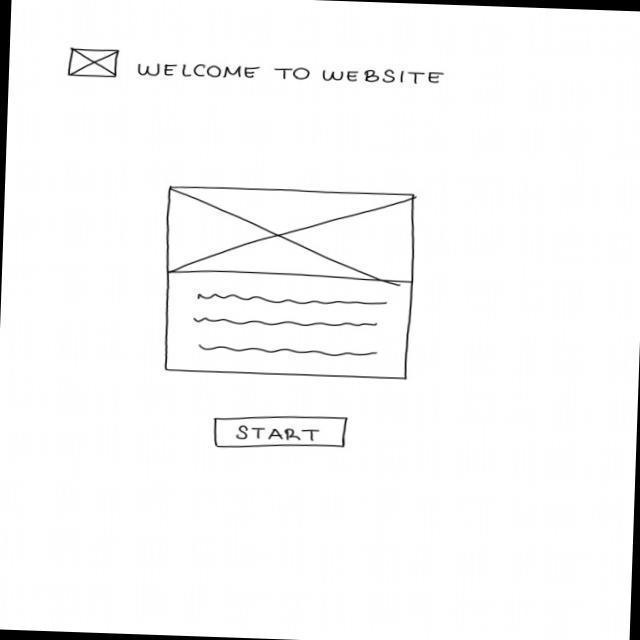 WELCOME TO WEBSITE
START